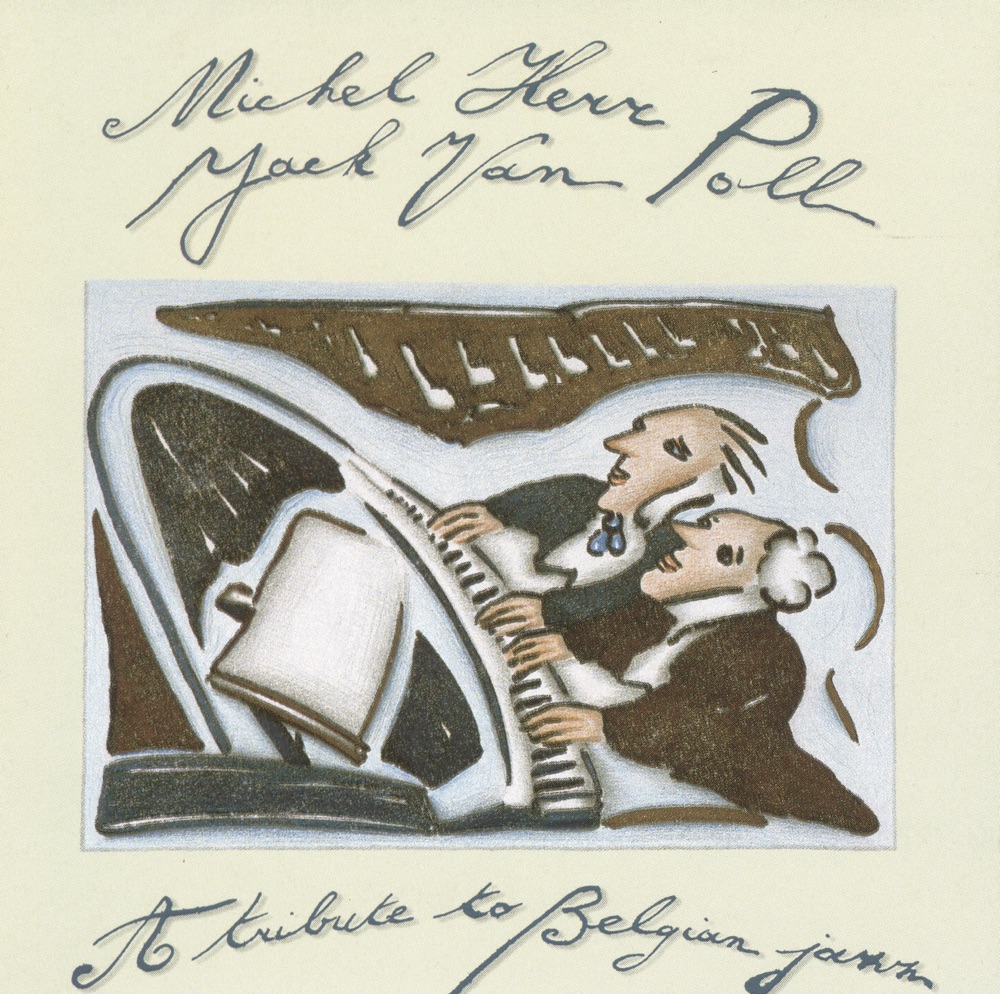 Michel Herr
Jack Van Poll
A tribute to Belgian jazz